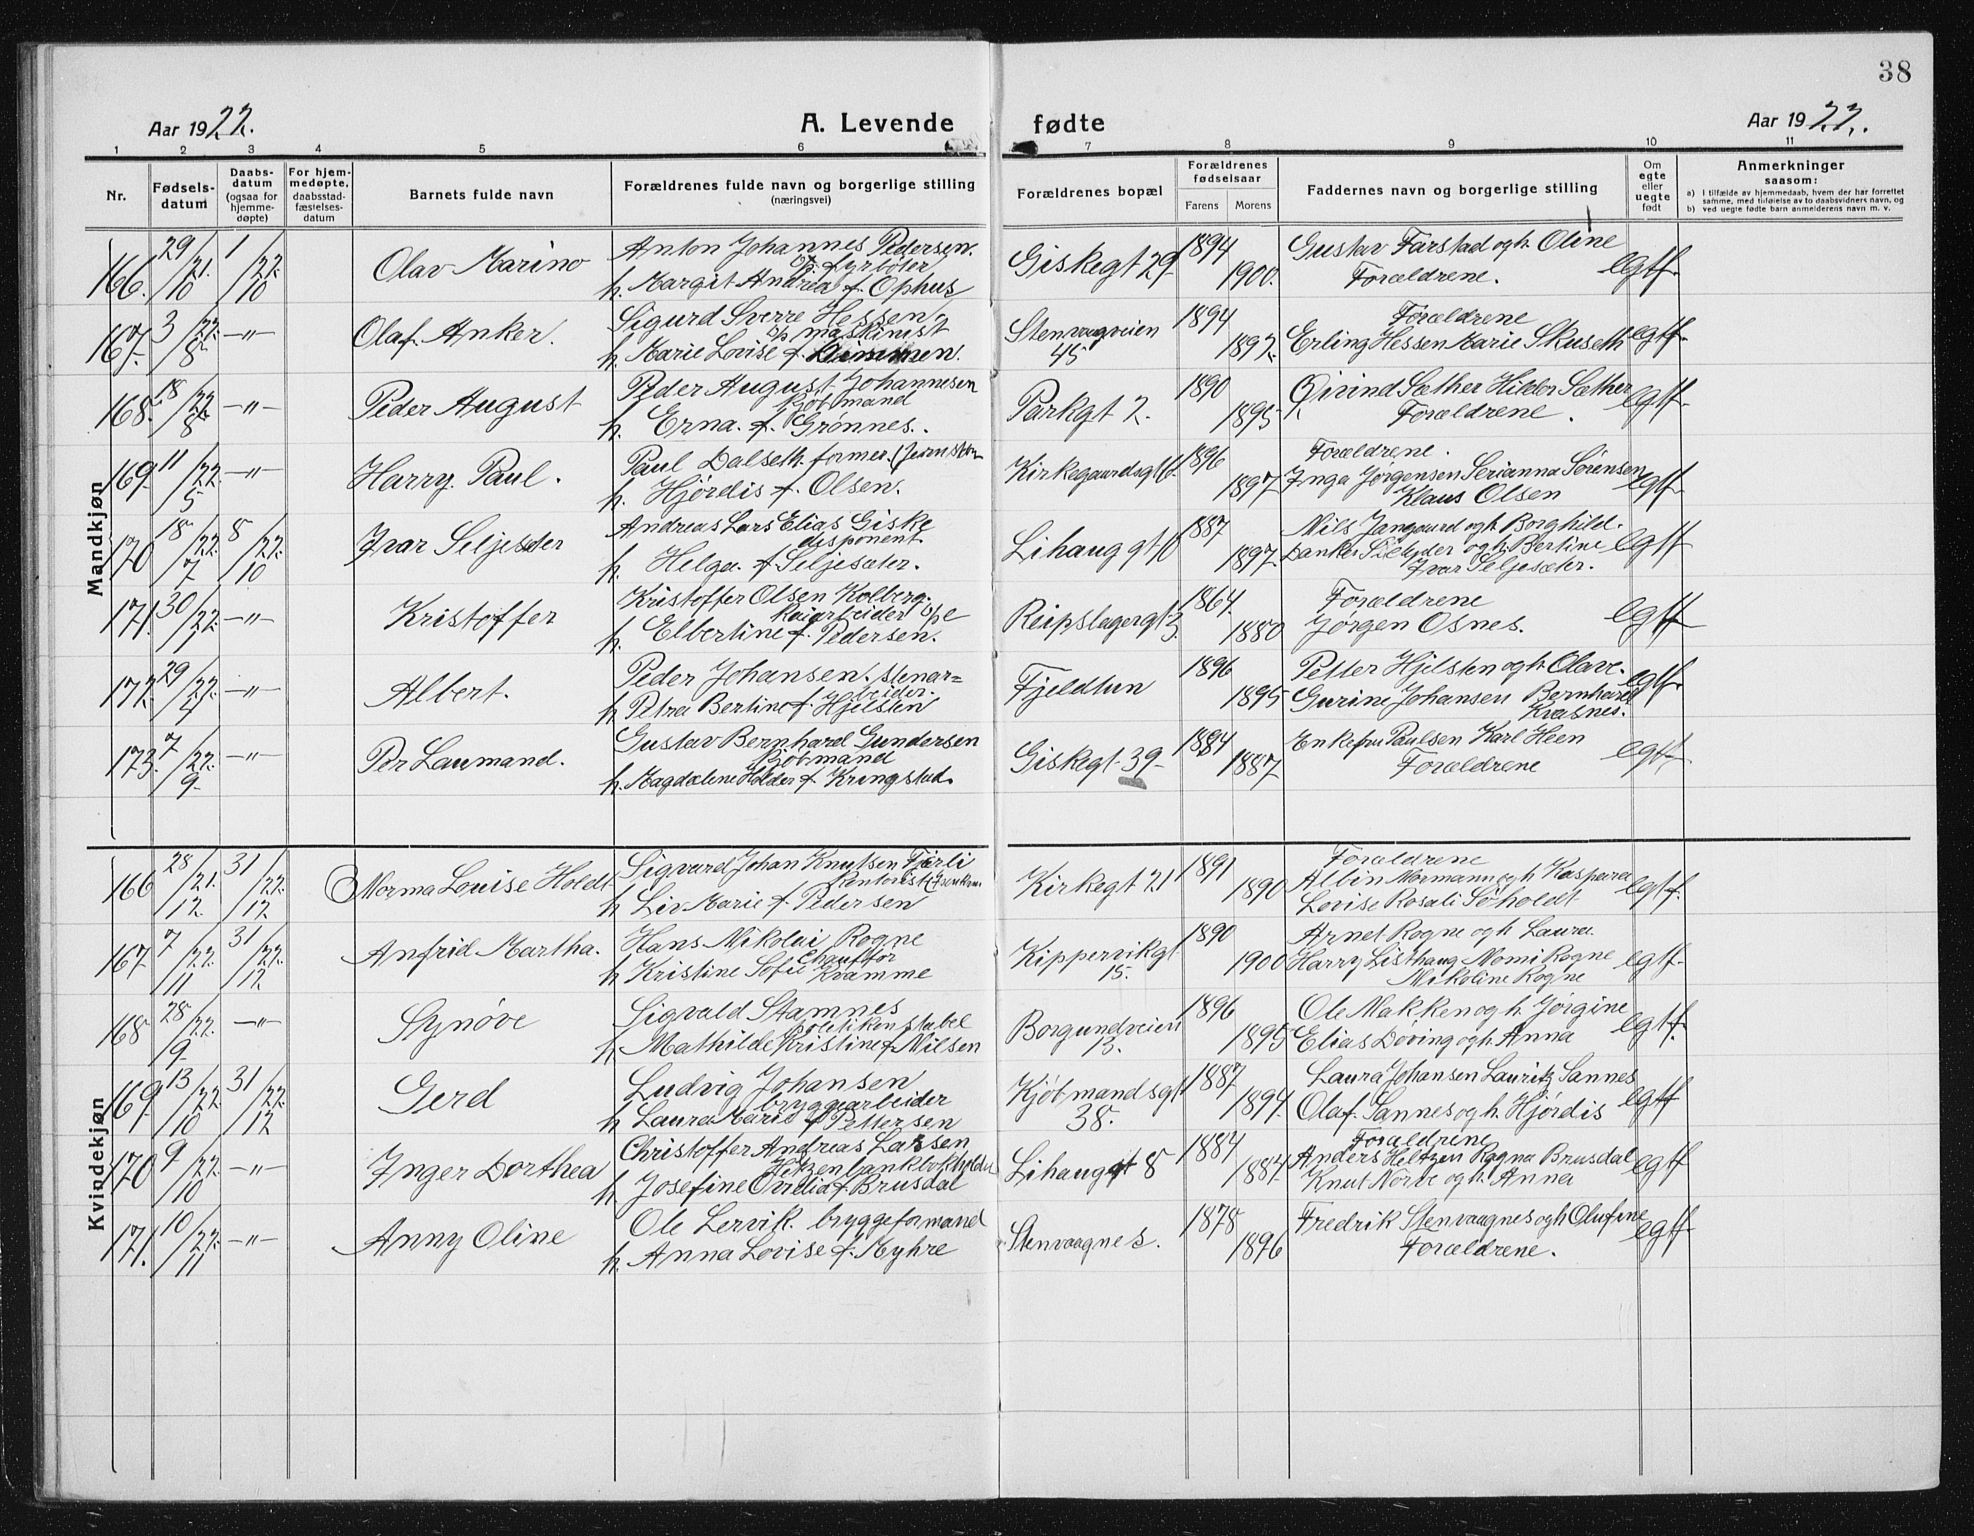 38
Aar 1922.
A. Levende fødte
Aar 1922.
1 2 3 4 5 6 7 8 9 10 11
Nr.
Fødsels-
datum
Daabs-
datum
(ogsaa for
hjemme-
døpte)
For hjem-
medøpte,
daabsstad-
fæstelses-
datum
Barnets fulde navn
Forældrenes fulde navn og borgerlige stilling
(næringsvei)
Forældrenes bopæl
Forældrenes
fødselsaar
Farens Morens
Faddernes navn og borgerlige stilling
Om
egte
eller
uegte
født
Anmerkninger
saasom:
a) I tilfælde av hjemmedaab, hvem der har forrettet
samme, med tilføielse av to daabsvidners navn, og
b) ved uegte fødte barn anmelderens navn m. v.
Mandkjøn
166. 29/10 21. 1/10 22. Olav Marino
Anton Johannes Pedersen.
fyrbøter
h. Margit Andrea f. Ophus
Giskegt 29. 1894 1900.
Gustav Farstad og h. Oline
Forældrene.
egtf.
167. 3/8 22. -"- Olaf Anker.
Sigurd Sverre Hessen
maskinist
h. Marie Lovise f.
Stenvaagveien
45
1894 1892.
Forældrene
Erling Hessen Marie Skuseth
egtf.
168. 18/8 22. -"- Peder August
Peder August Johannesen
Kjøbmand
h. Erna f. Grønnes.
Parkgt 2. 1890 1895
Øivind Sæther Hildor Sæther
Forældrene.
egtf.
169. 11/5 22. -"- Harry Paul.
Paul Dalseth. former
h. Hjørdis f. Olsen.
Kirkegaardsgt 6 1896 1897.
Forældrene.
Inga Jørgensen Serianna Sørensen
Klaus Olsen
egtf.
170 18/7 22. 8/10 22. Ivar Seljesæter
Andreas Lars Elias Giske
disponent
h. Helga f. Seljesæter.
Lihauggt 10 1887 1897.
Nils Jangaard og h. Borghild.
og h. Bertine
Ivar Seljesæter.
egtf
171. 30/7 22. -"- Kristoffer
Kristoffer Olsen Kolberg.
Kaiarbeider
h. Elbertine f. Pedersen.
Reipslagergt 3 1864. 1880
Forældrene
Jørgen Osnes.
egtf
172. 29/7 22. -"- Albert.
Peder Johansen. stenar=
beider.
h. Petra Bertine f. Hjelsten
Fjeldtun 1896 1895
Petter Hjelsten og h. Olave.
Gurine Johansen Bernhard
Kvasnes.
egtf.
173. 7/9 22. -"- Per Laumand.
Gustav Bernhard Gundersen
Kjøbmand
h. Magdalene Holder f. Kringstad.
Giskegt. 39. 1884 1887.
Enkefru Paulsen Karl Heen
Forældrene
egtf.
Kvindekjøn
166 28/12 21. 31/12 22. Norma Louise Holdt
Sigvard Johan Knutsen Fjørli
Kontorist
h Liv Marie f. Pedersen
Kirkegt 21 1891 1890
Forældrene
Albin Normann og h Kaspara
Lovise Rosali Søholdt
egtf.
167. 7/11 22. 31/12 22. Anfrid Martha.
Hans Nikolai Rogne
chauffør
h Kristine Sofie Kvamme
Kippervikgt
15.
1890 1900
Arnet Rogne og h Laura
Harry Listhaug Momi Rogne
Nikoline Rogne
egtf.
168 28/9 22. -"- Synøve
Sigvald Stamnes
Politikonstabel
h Mathilde Kristine f. Nilsen
Borgundveien
13.
1896 1895
Ole Makken og h Jørgine
Elias Døving og h Anna
egtf.
169 13/10 22. 31/12 22. Gerd
Ludvig Johansen
bryggearbeider
h Laura Marie f. Pettersen
Kjøbmandsgt
38.
1887 1894.
Laura Johansen Lauritz Sannes
Olaf Sannes og h Hjørdis
egtf
170 9/10 22. -"- Inger Dorthea
Christoffer Andreas Larsen
h Josefine Ovidia f. Brusdal
Lihauggt 8 1884 1884.
Forældrene
Anders Heltzen Ragna Brusdal
Knut Nørve og h. Anna
egtf
171. 10/11 22. -"- Anny Oline
Ole Lervik. bryggeformand
h. Anna Lovise f. Myhre
Stenvaagnes. 1878 1896
Fredrik Stenvaagnes og h Olufine
Forældrene.
egtf